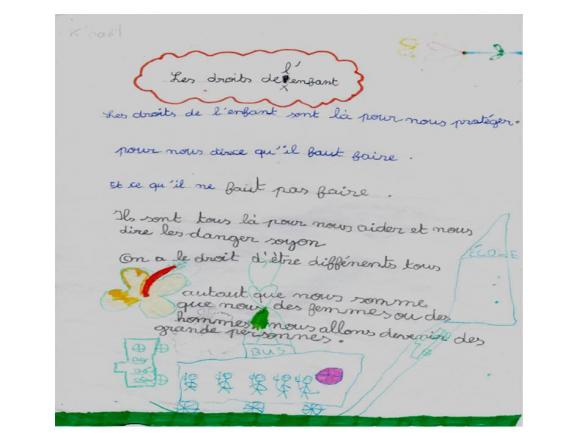 Les droits de l'enfant
Les droits de l'enfant sont là pour nous protéger.
pour nous dirce qu'il faut faire.
Et ce qu'il ne faut pas faire.
Ils sont tous là pour nous aider et nous
dire les danger soyon
On a le droit d'être différents tous
autaut que nous somme
que nous des femmes ou des
hommes nous allons devenir des
grande personnes.
ÉCOLE
BUS